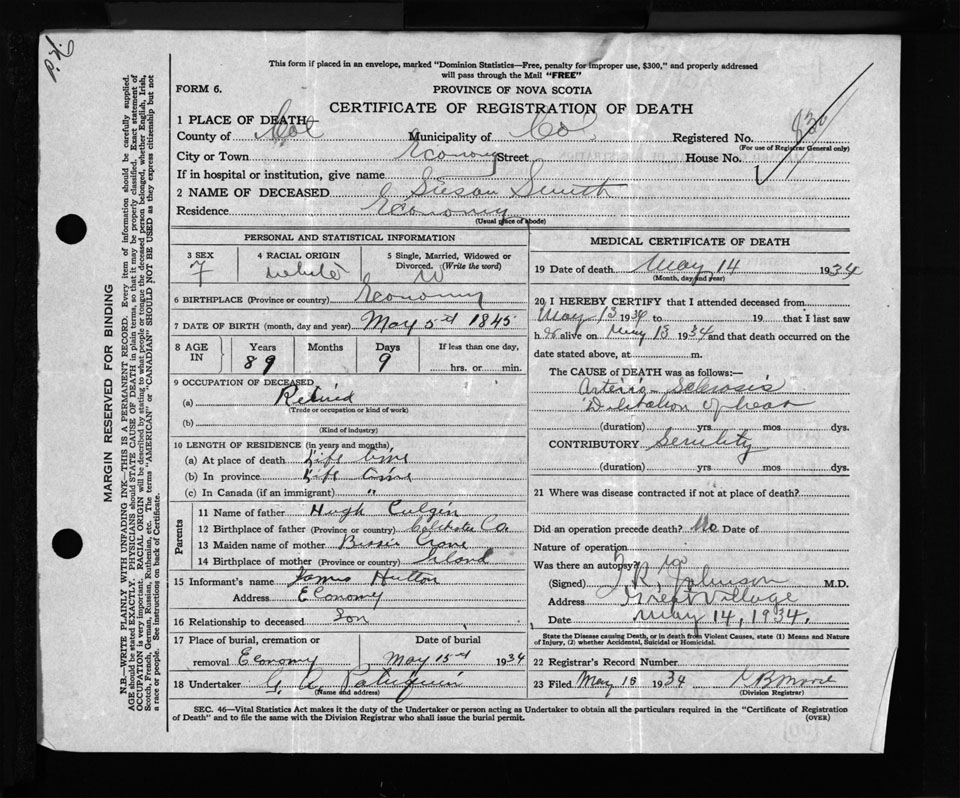 This form if placed in an envelope, marked "Dominion Statistics—Free, penalty for improper use, $300," and properly addressed
will pass through the Mail "FREE"
FORM 6. PROVINCE OF NOVA SCOTIA
CERTIFICATE OF REGISTRATION OF DEATH
1 PLACE OF DEATH
County of Col Municipality of Col Registered No. 830
(For use of Registrar General only)
City or Town Economy Street House No.
If in hospital or institution, give name
2 NAME OF DECEASED Susan Smith
Residence Economy
(Usual place of abode)
PERSONAL AND STATISTICAL INFORMATION
3 SEX 4 RACIAL ORIGIN 5 Single, Married, Widowed or
Divorced. (Write the word)
F White W
6 BIRTHPLACE (Province or country) Economy
7 DATE OF BIRTH (month, day and year) May 5th 1845
8 AGE IN Years Months Days If less than one day,
89 9 hrs. or min.
9 OCCUPATION OF DECEASED
(a) Retired
(Trade or occupation or kind of work)
(b)
(Kind of industry)
10 LENGTH OF RESIDENCE (in years and months)
(a) At place of death Life time
(b) In province Life time
(c) In Canada (if an immigrant) "
Parents
11 Name of father Hugh
12 Birthplace of father (Province or country) Colchester Co
13 Maiden name of mother
14 Birthplace of mother (Province or country) Irland
15 Informant's name James Hutton
Address Economy
16 Relationship to deceased Son
17 Place of burial, cremation or Date of burial
removal Economy May 15th 1934
18 Undertaker G.
(Name and address)
MEDICAL CERTIFICATE OF DEATH
19 Date of death May 14 1934
(Month, day and year)
20 I HEREBY CERTIFY that I attended deceased from
May 13 1934 to 19 that I last saw
h alive on May 13 1934 and that death occurred on the
date stated above, at m.
The CAUSE of DEATH was as follows:
Arterio-Sclerosis
of heart
(duration) yrs. mos. dys.
CONTRIBUTORY Senility
(duration) yrs. mos. dys.
21 Where was disease contracted if not at place of death?
Did an operation precede death? No Date of
Nature of operation
Was there an autopsy? no
(Signed) J R Johnson M.D.
Address Great Village
Date May 14, 1934.
State the Disease causing Death, or in death from Violent Causes, state (1) Means and Nature
of Injury, (2) whether Accidental, Suicidal or Homicidal.
22 Registrar's Record Number
23 Filed May 1934
(Division Registrar)
SEC. 46—Vital Statistics Act makes it the duty of the Undertaker or person acting as Undertaker to obtain all the particulars required in the "Certificate of Registration
of Death" and to file the same with the Division Registrar who shall issue the burial permit. (OVER)
MARGIN RESERVED FOR BINDING
N.B.—WRITE PLAINLY WITH UNFADING INK—THIS IS A PERMANENT RECORD. Every item of information should be carefully supplied.
AGE should be stated EXACTLY. PHYSICIANS should STATE CAUSE OF DEATH in plain terms, so that it may be properly classified. Exact statement of
OCCUPATION is very important. RACIAL ORIGIN will be described by stating to what people or tongue the deceased person belonged, whether English, Irish,
Scotch, French, German, Russian, Ruthenian, etc. The terms "AMERICAN" or "CANADIAN" SHOULD NOT BE USED as they express citizenship but not
a race or people. See instructions on back of Certificate.